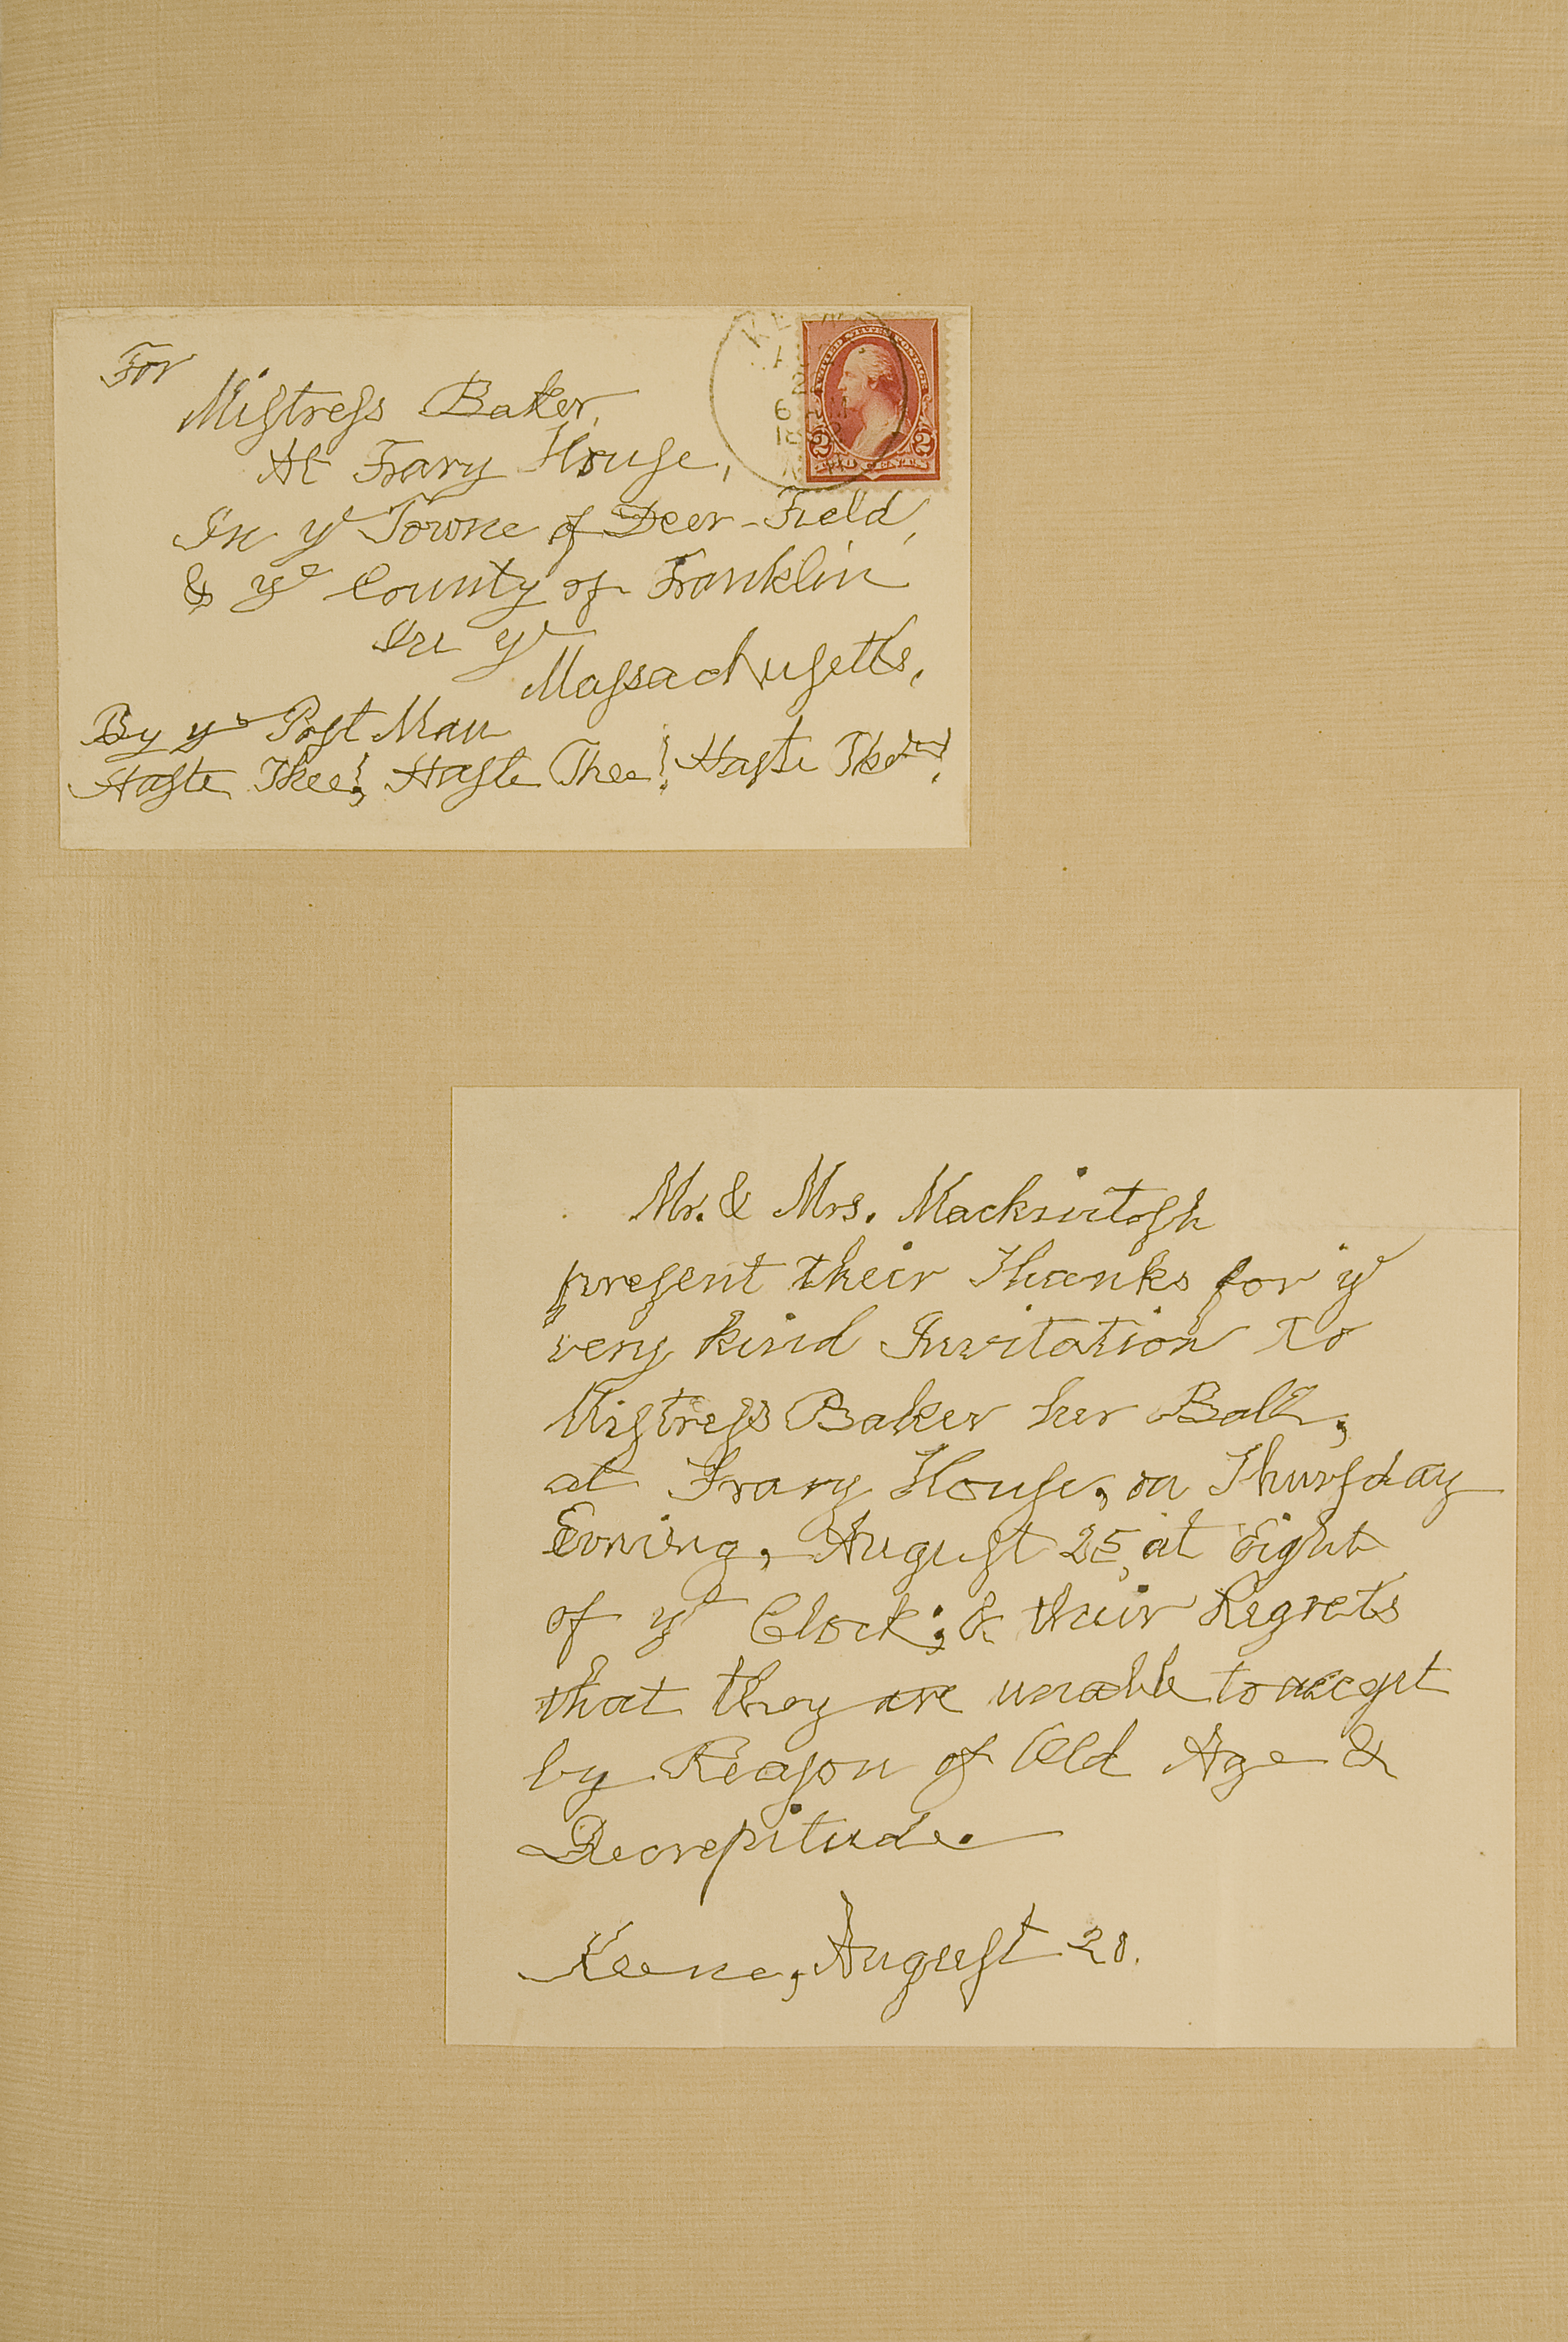 For
Miſtreſs Baker,
At Frary Houſe,
In yᵉ Towne of Deer-Field,
& yᵉ County of Franklin
In yᵉ
Maſsachuſetts,
By yᵉ Poſt Man
Haſte Thee! Haſte Thee! Haſte Thee!
UNITED STATES POSTAGE
2 2
TWO CENTS
Mr. & Mrs. Mackintoſh
preſent their Thanks for yᵉ
very kind Invitation to
Miſtreſs Baker her Ball,
at Frary Houſe, on Thurſday
Evning, Auguſt 25, at Eight
of yᵉ Clock; & their Regrets
that they are unable to accept
by Reaſon of Old Age &
Decrepitude.
Keene, Auguſt 20.